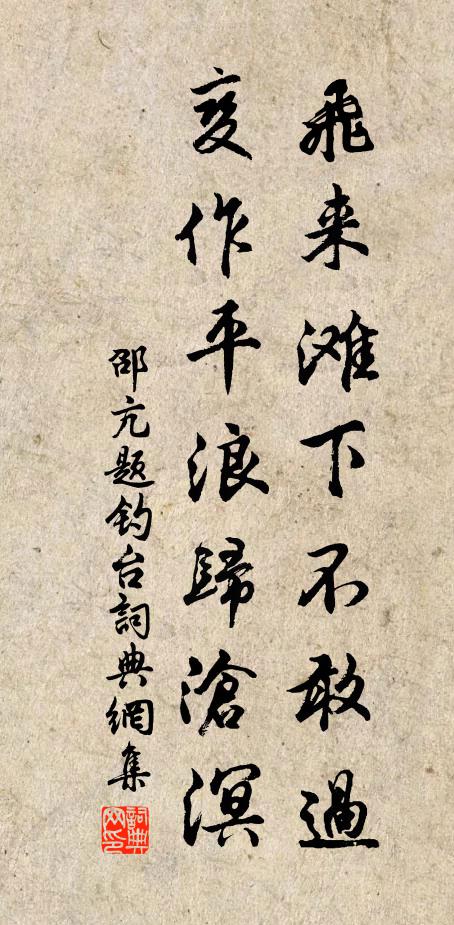 飛来滩下不敢過
変作平浪歸滄溟
邵亢题钓台詞典網集
詞典网印